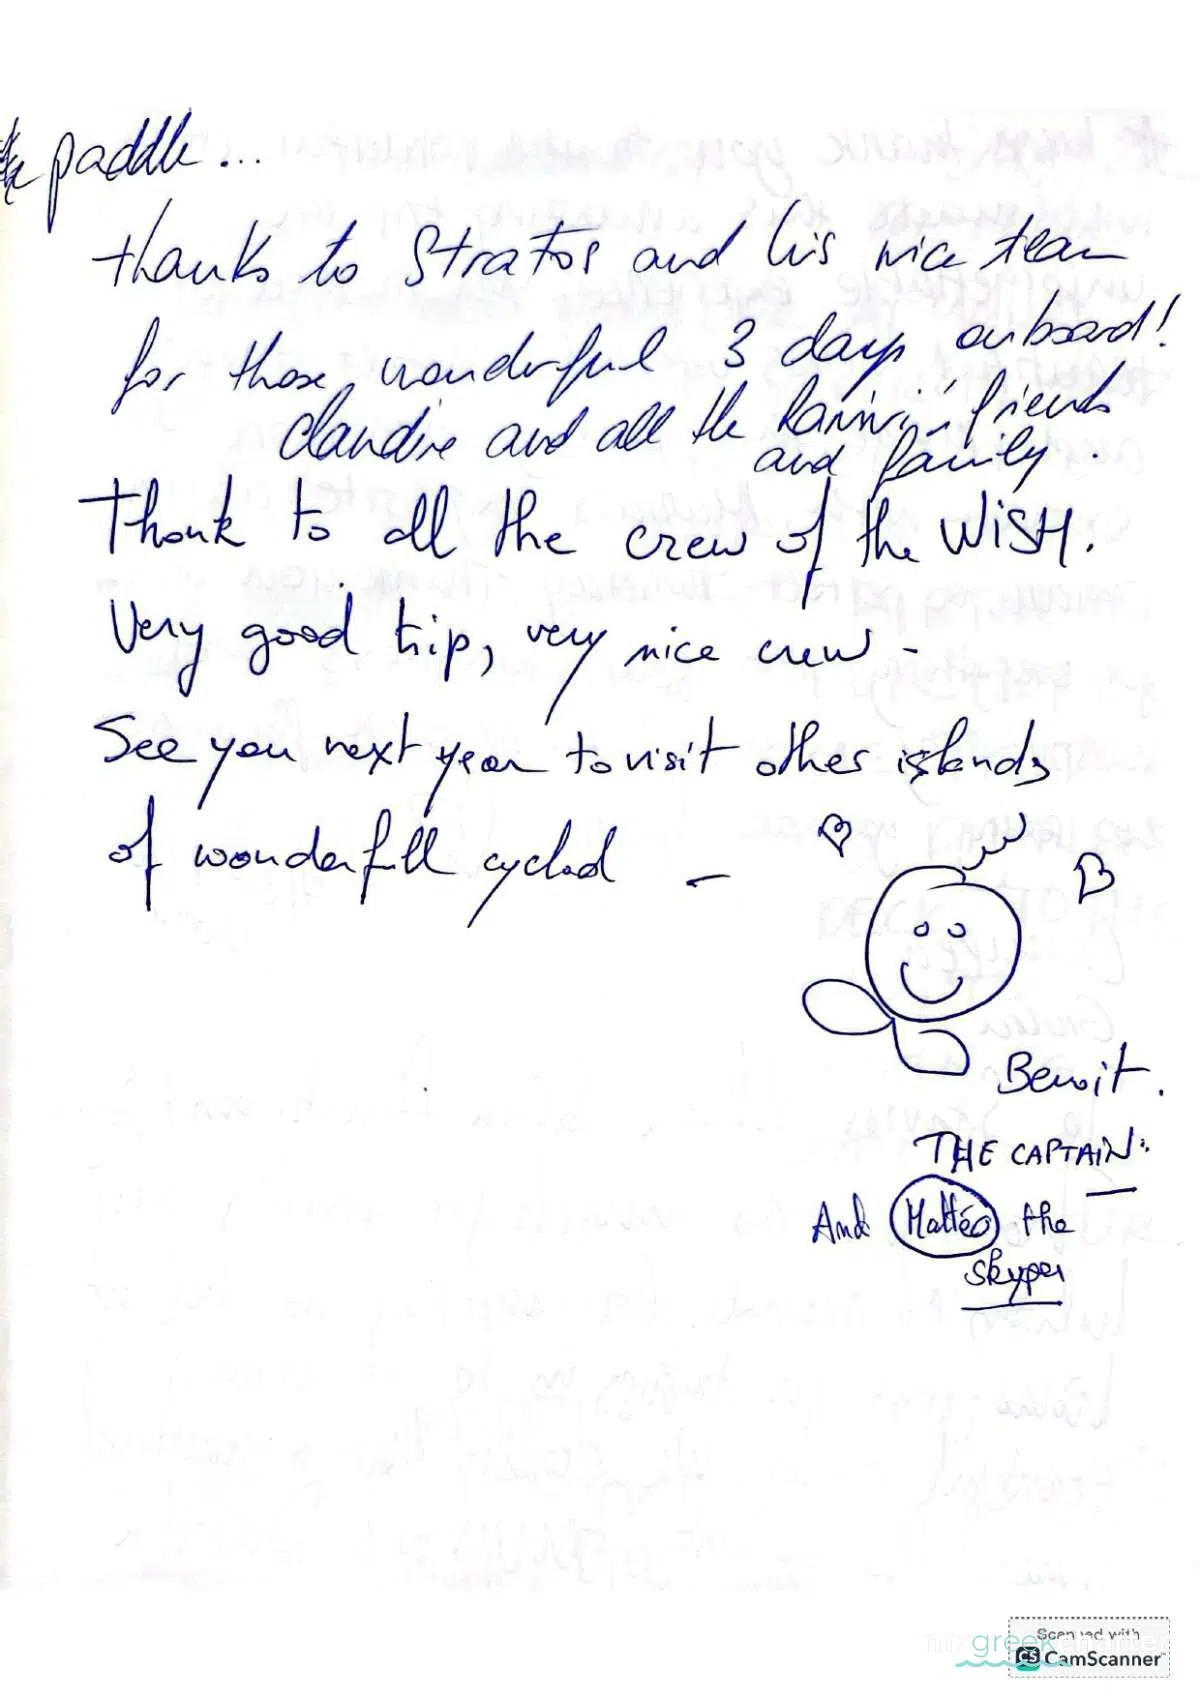 paddle...
thanks to Stratos and his nice team
for those wonderful 3 days onboard!
Claudie and all the friends
and family.
Thank to all the crew of the WISH.
Very good trip, very nice crew -
See you next year to visit other islands
of wonderfull cyclad -
Benoit.
THE CAPTAIN.
And Mattéo the
skyper
Scanned with
my greekcharter
CS CamScanner